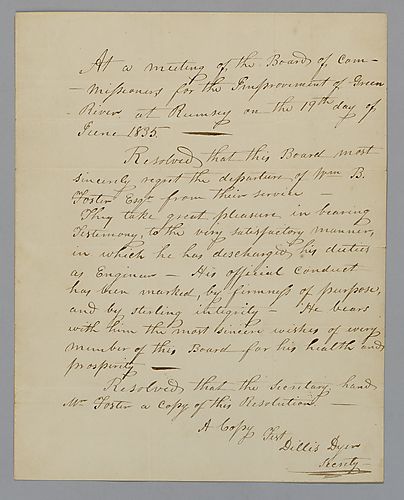 At a meeting of the Board of Com-
-missioners for the Improvement of Green
River at Rumsey on the 19th day of
June 1835
Resolved that this Board most
sincerely regret the departure of Wm B.
Foster Esqr from their service -
They take great pleasure in bearing
Testimony, to the very satisfactory manner,
in which he has discharged his duties
as Engineer - His official Conduct
has been marked, by firmness of purpose,
and by sterling integrity - He bears
with him the most sincere wishes of every
member of this Board for his health and
prosperity -
Resolved that the Secretary, hand
Mr Foster a copy of this Resolution -
A Copy Test
Dillis Dyer
Secrety